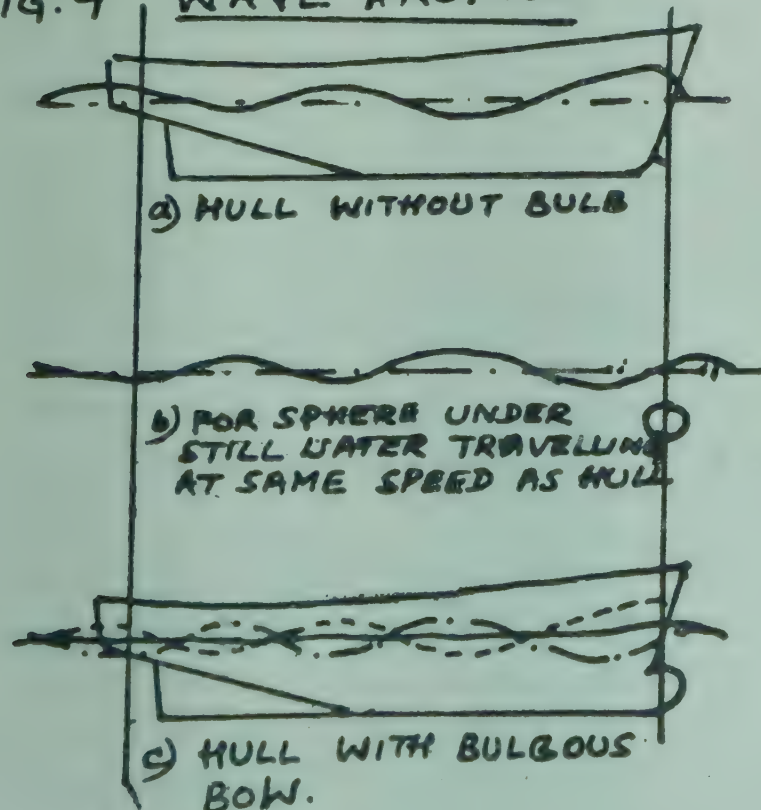 WAVE
a) HULL WITHOUT BULB
b) FOR SPHERE UNDER
STILL WATER TRAVELLING
AT SAME SPEED AS HULL
c) HULL WITH BULBOUS
BOW.